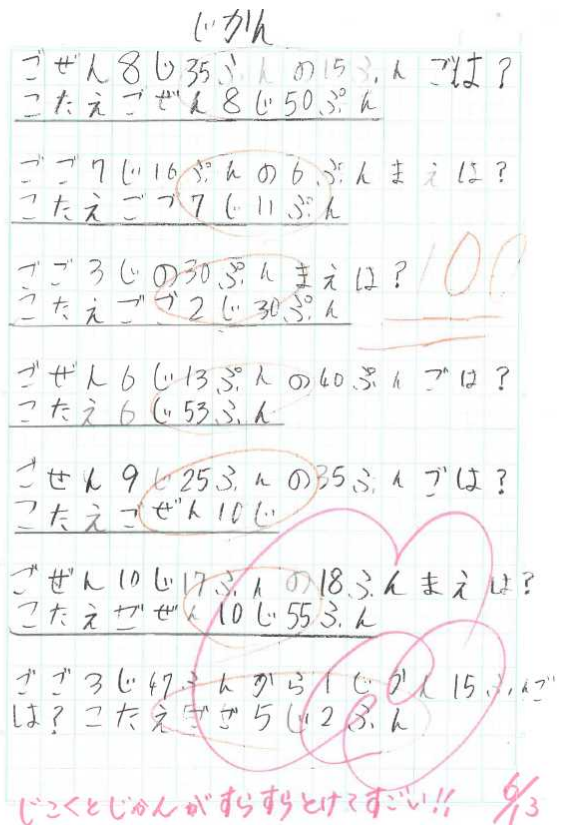 じかん
ごぜん8じ35ふんの15ふんごは?
こたえごぜん8じ50ぷん
ごご7じ16ぷんの6ぷんまえは?
こたえごご7じ11ぷん
ごご3じの30ぷんまえは?
こたえごご2じ30ぷん
100
ごぜん6じ13ぷんの40ぷんごは?
こたえ6じ53ふん
ごせん9じ25ふんの35ふんごは?
こたえごぜん10じ
ごぜん10じ17ふんの18ふんまえは?
こたえごぜん10じ55ふん
ごご3じ47ふんから1じかん15ふんご
は?こたえごご5じ2ふん
じこくとじかんがすらすらとけてすごい!! 6/13